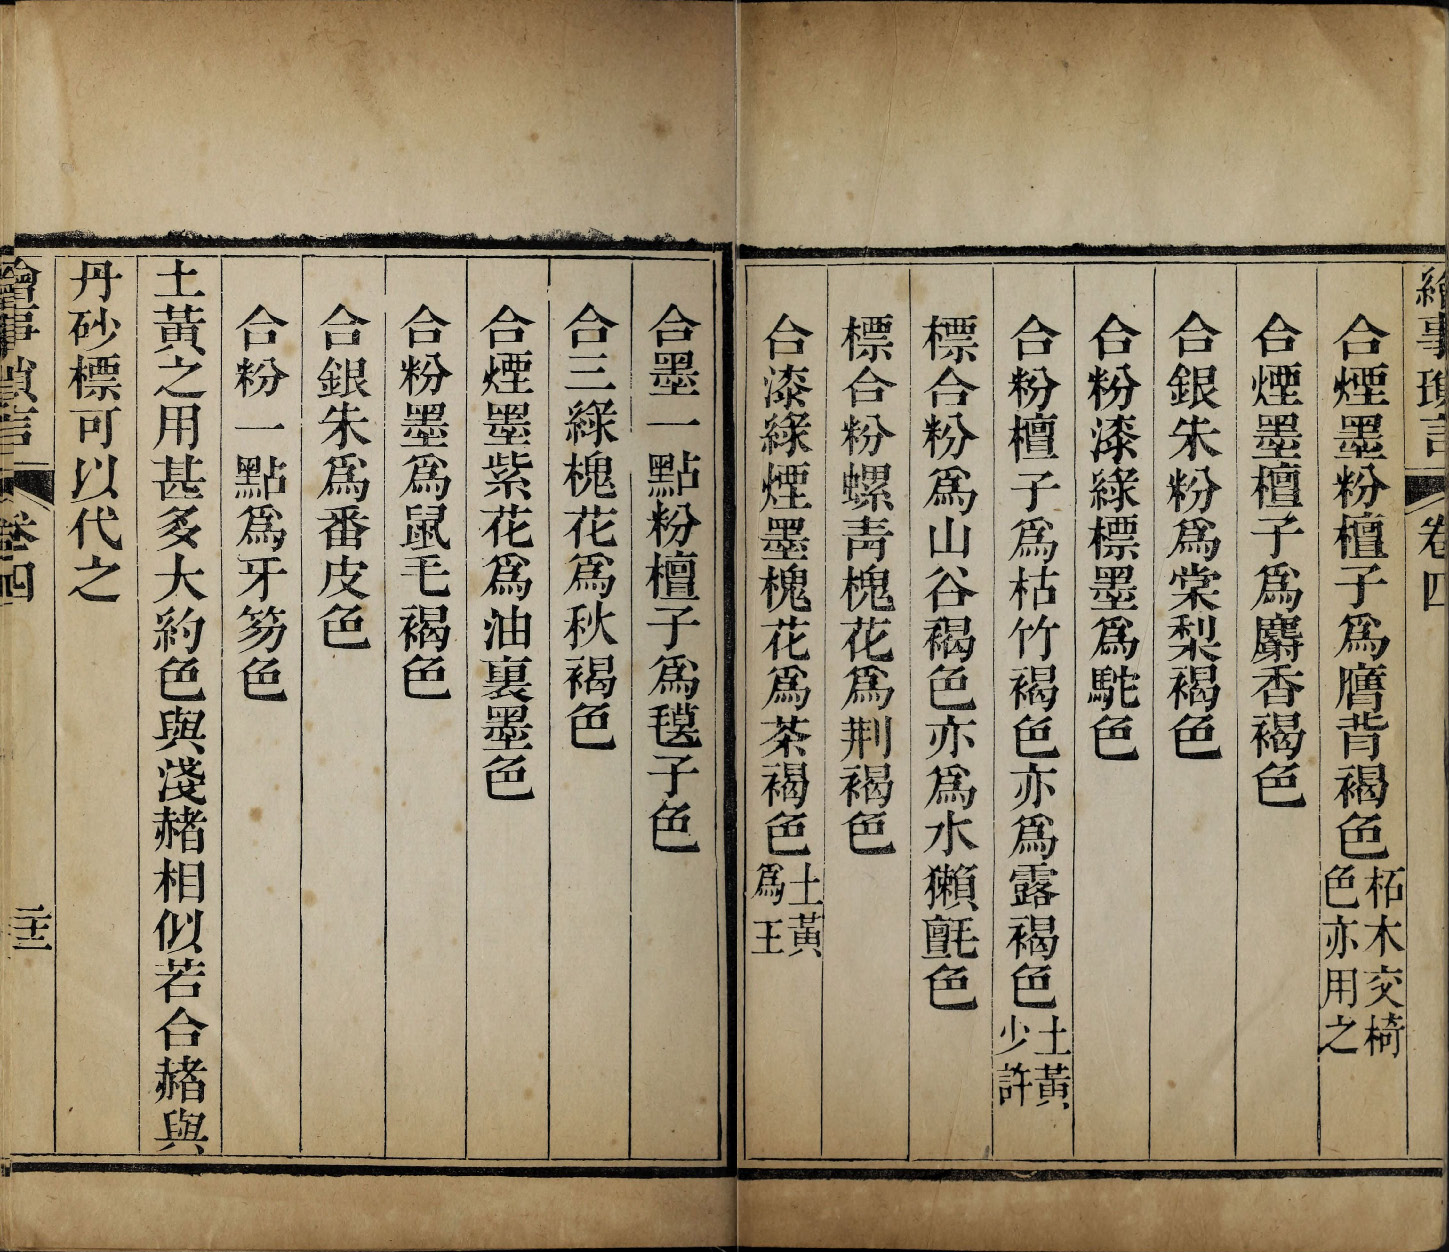 繪事瑣言 卷四
合煙墨粉檀子爲鷹背褐色柘木交椅色亦用之
合煙墨檀子爲麝香褐色
合銀朱粉爲棠梨褐色
合粉漆綠標墨爲駝色
合粉檀子爲枯竹褐色亦爲露褐色土黃少許
標合粉爲山谷褐色亦爲水獺氈色
標合粉螺靑槐花爲荆褐色
合漆綠煙墨槐花爲茶褐色土黃爲王
合墨一點粉檀子爲毯子色
合三綠槐花爲秋褐色
合煙墨紫花爲油裏墨色
合粉墨爲鼠毛褐色
合銀朱爲番皮色
合粉一點爲牙笏色
土黃之用甚多大約色與淺赭相似若合赭與
丹砂標可以代之
繪事瑣言 卷四